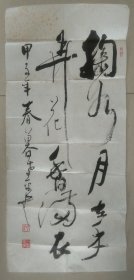 掬水月在手
弄花香满衣
甲子年春